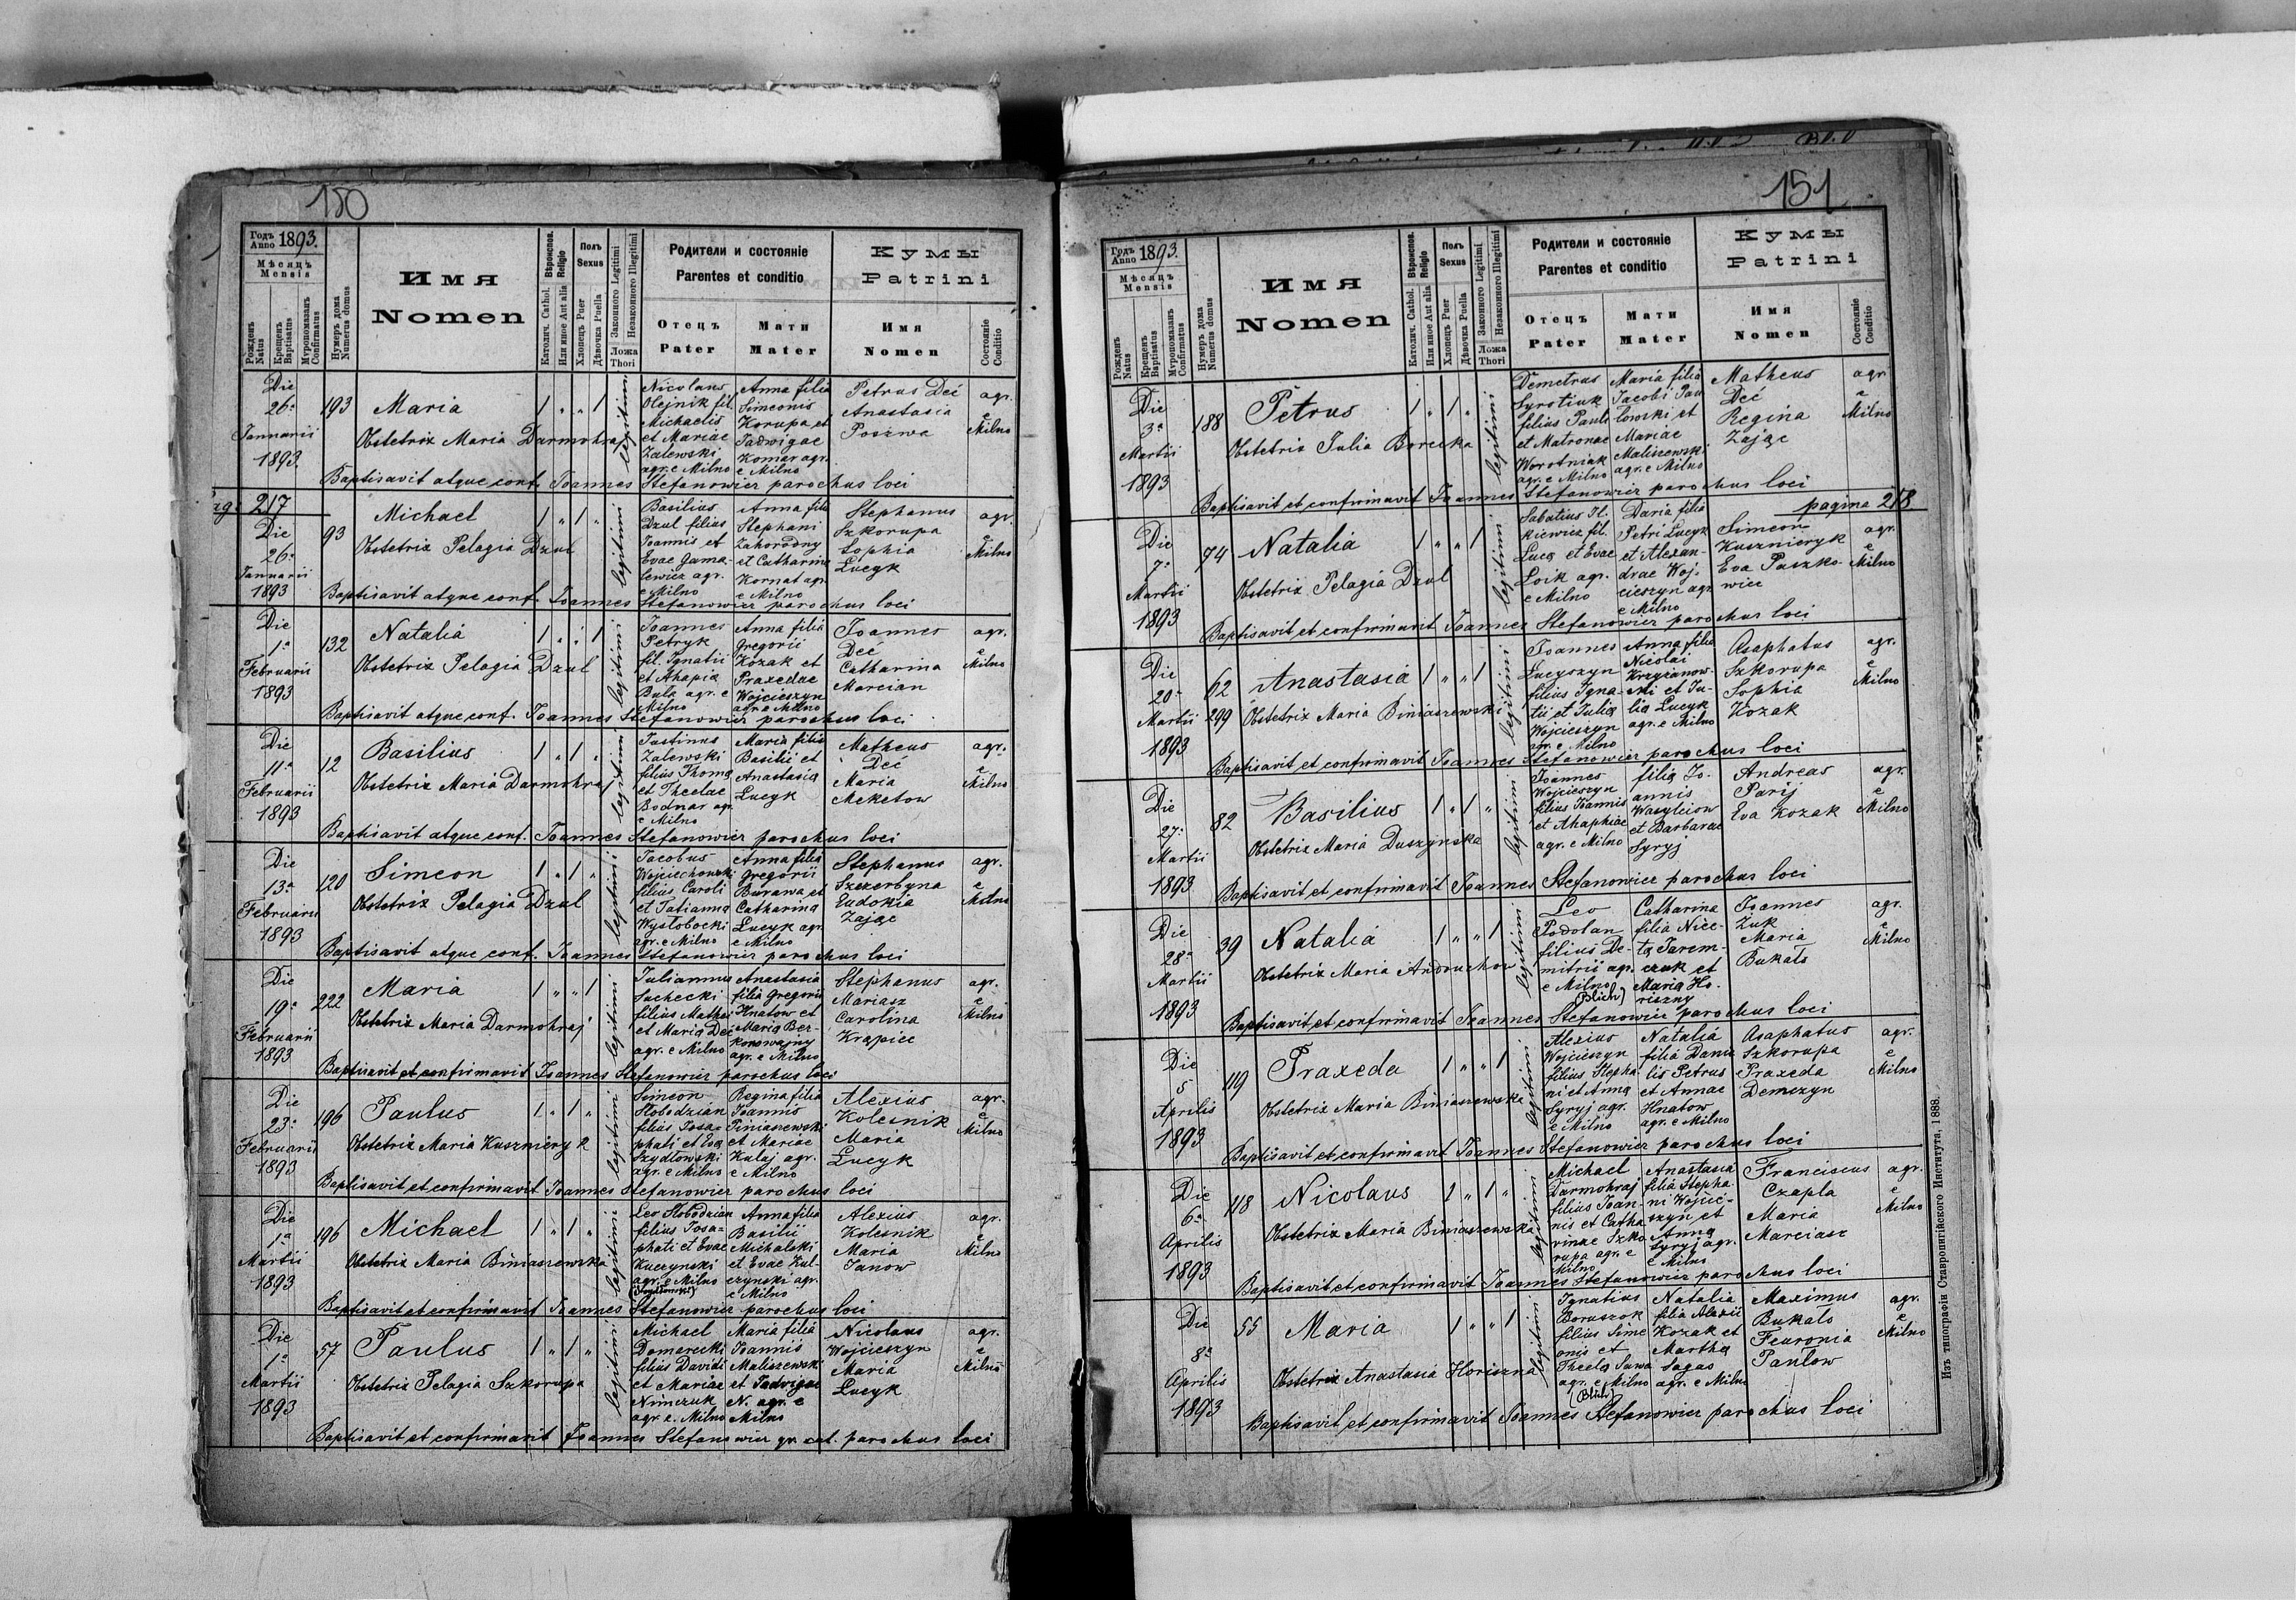 150
Годъ Anno 1893.
Мѣсяцъ Mensis
Рожденъ Natus
Крещенъ Baptisatus
Муропомазанъ Confirmatus
Нумеръ дома Numerus domus
Имя
Nomen
Вѣроиспов. Religio
Католич. Cathol.
Или иное Aut alia
Полъ Sexus
Хлопецъ Puer
Дѣвочка Puella
Законного Legitimi
Незаконного Illegitimi
Ложа Thori
Родители и состояніе
Parentes et conditio
Отецъ Pater
Мати Mater
Кумы
Patrini
Имя Nomen
Состояніе Conditio
Die 26ª Januarii 1893
193
Maria
1 " " 1
legitimi
Obstetrix Maria Darmohraj
Nicolaus Olejnik fil. Michaelis et Mariae Zalewski agr. e Milno
Anna filia Simeonis Korupa et Jadwigae Komar agr. e Milno
Petrus Deć
Anastasia Poszwa
agr. e Milno
Baptisavit atque conf. Joannes Stefanowicz parochus loci
pag: 217
Die 26ª Januarii 1893
93
Michael
1 " 1 "
legitimi
Obstetrix Pelagia Dzul
Basilius Dzul filius Joannis et Evae Gamalewicz agr. e Milno
Anna filia Stephani Zahorodny et Catharina Kornat agr. e Milno
Stephanus Szkorupa
Sophia Lucyk
agr. e Milno
Baptisavit atque conf. Joannes Stefanowicz parochus loci
Die 1ª Februarii 1893
132
Natalia
1 " " 1
legitimi
Obstetrix Pelagia Dzul
Joannes Petryk fil. Ignatii et Ahapia Bula agr. e Milno
Anna filia Gregorii Kozak et Praxedae Wojcieszyn agr. e Milno
Joannes Deć
Catharina Marcian
agr. e Milno
Baptisavit atque conf. Joannes Stefanowicz parochus loci
Die 11ª Februarii 1893
12
Basilius
1 " 1 "
legitimi
Obstetrix Maria Darmohraj
Justinus Zalewski filius Thoma et Theclae Bodnar agr. e Milno
Maria filia Basilii et Anastasia Lucyk
Matheus Deć
Maria Meketow
agr. e Milno
Baptisavit atque conf. Joannes Stefanowicz parochus loci
Die 13ª Februarii 1893
120
Simeon
1 " 1 "
legitimi
Obstetrix Pelagia Dzul
Jacobus Wojciechowski filius Caroli et Tatianna Wysłobocki agr. e Milno
Anna filia Gregorii Burawa et Catharina Lucyk agr. e Milno
Stephanus Szczerbyna
Eudokia Zając
agr. e Milno
Baptisavit atque conf. Joannes Stefanowicz parochus loci
Die 19ª Februarii 1893
222
Maria
1 " " 1
legitimi
Obstetrix Maria Darmohraj
Julianus Sachecki filius Mathei et Maria Deć agr. e Milno
Anastasia filia Gregorii Hnatow et Maria Berkonowajny agr. e Milno
Stephanus Mariasz
Carolina Krapiec
agr. e Milno
Baptisavit et confirmavit Joannes Stefanowicz parochus loci
Die 23ª Februarii 1893
196
Paulus
1 " 1 "
legitimi
Obstetrix Maria Kusznieryk
Simeon Słobodzian filius Josaphati et Eva Szydłowski agr. e Milno
Regina filia Joannis Piniaszewski et Mariae Kulaj agr. e Milno
Alexius Kolesnik
Maria Lucyk
agr. e Milno
Baptisavit et confirmavit Joannes Stefanowicz parochus loci
Die 1ª Martii 1893
196
Michael
1 " 1 "
legitimi
Obstetrix Maria Biniaszewska
Leo Słobodzian filius Josaphati et Evae Kuczynski agr. e Milno (Szydłowski)
Anna filia Basilii Michalski et Evae Kulczynski agr. e Milno
Alexius Kolesnik
Maria Janow
agr. e Milno
Baptisavit et confirmavit Joannes Stefanowicz parochus loci
Die 1ª Martii 1893
57
Paulus
1 " 1 "
legitimi
Obstetrix Pelagia Szkorupa
Michael Domarecki filius Davidi et Mariae Nimczuk agr. e. Milno
Maria filia Joannis Maliszewski et Jadwigae N. agr. e Milno
Nicolaus Wojcieszyn
Maria Lucyk
agr. e Milno
Baptisavit et confirmavit Joannes Stefanowicz gr. cat. parochus loci
151
Годъ Anno 1893.
Мѣсяцъ Mensis
Рожденъ Natus
Крещенъ Baptisatus
Муропомазанъ Confirmatus
Нумеръ дома Numerus domus
Имя
Nomen
Вѣроиспов. Religio
Католич. Cathol.
Или иное Aut alia
Полъ Sexus
Хлопецъ Puer
Дѣвочка Puella
Законного Legitimi
Незаконного Illegitimi
Ложа Thori
Родители и состояніе
Parentes et conditio
Отецъ Pater
Мати Mater
Кумы
Patrini
Имя Nomen
Состояніе Conditio
Die 3ª Martii 1893
188
Petrus
1 " 1 "
legitimi
Obstetrix Julia Borecka
Demetrus Syrotiuk filius Pauli et Matronae Worotniak agr. e Milno
Maria filia Jacobi Pawłowski et Mariae Maliszewski agr. e Milno
Matheus Deć
Regina Zając
agr. e Milno
Baptisavit et confirmavit Joannes Stefanowicz parochus loci
pagina 218
Die 7ª Martii 1893
74
Natalia
1 " " 1
legitimi
Obstetrix Pelagia Dzul
Sabatius Ilkiewicz fil. Luca et Evae Loik agr. e Milno
Daria filia Petri Lucyk et Alexandrae Wojcieszyn agr. e Milno
Simeon Kusznieryk
Eva Paszkowicz
agr. e Milno
Baptisavit et confirmavit Joannes Stefanowicz parochus loci
Die 20ª Martii 1893
62
299
Anastasia
1 " " 1
legitimi
Obstetrix Maria Biniaszewski
Joannes Lucyszyn filius Ignatii et Julia Wojcieszyn agr. e Milno
Anna filia Nicolai Krzyżanowski et Julia Lucyk agr. e Milno
Asaphatus Szkorupa
Sophia Kozak
agr. e Milno
Baptisavit et confirmavit Joannes Stefanowicz parochus loci
Die 27ª Martii 1893
82
Basilius
1 " 1 "
legitimi
Obstetrix Maria Duszynska
Joannes Wojcieszyn filius Joannis et Ahaphiae agr. e Milno
filia Joannis Wasylciow et Barbarae Syryj
Andreas Parij
Eva Kozak
agr. e Milno
Baptisavit et confirmavit Joannes Stefanowicz parochus loci
Die 28ª Martii 1893
39
Natalia
1 " " 1
legitimi
Obstetrix Maria Andruchow
Leo Podolan filius Demitrii agr. e Milno (Blich)
Catharina filia Niceta Jaremczuk et Maria Horiszny
Joannes Żuk
Maria Bukata
agr. e Milno
Baptisavit et confirmavit Joannes Stefanowicz parochus loci
Die 5 Aprilis 1893
119
Praxeda
1 " " 1
legitimi
Obstetrix Maria Biniaszewska
Alexius Wojcieszyn filius Stephani et Anna Syryj agr. e Milno
Natalia filia Danielis Petrus et Annae Hnatow agr. e Milno
Asaphatus Szkorupa
Praxeda Demczyn
agr. e Milno
Baptisavit et confirmavit Joannes Stefanowicz parochus loci
Die 6ª Aprilis 1893
118
Nicolaus
1 " 1 "
legitimi
Obstetrix Maria Biniaszewska
Michael Darmohraj filius Joannis et Catharinae Szkorupa agr. e Milno
Anastasia filia Stephani Wojcieszyn et Anna Syryj agr. e Milno
Franciscus Czapla
Maria Marciasz
agr. e Milno
Baptisavit et confirmavit Joannes Stefanowicz parochus loci
Die 8ª Aprilis 1893
55
Maria
1 " " 1
legitimi
Obstetrix Anastasia Horiszna
Ignatius Boruszok filius Simeonis et Thecla Sawa agr. e Milno (Blich)
Natalia filia Alexii Kozak et Martha Sagas agr. e Milno
Maximus Bukało
Feuronia Pawłow
agr. e Milno
Baptisavit et confirmavit Joannes Stefanowicz parochus loci
Изъ типографіи Ставропигійского Института, 1888.